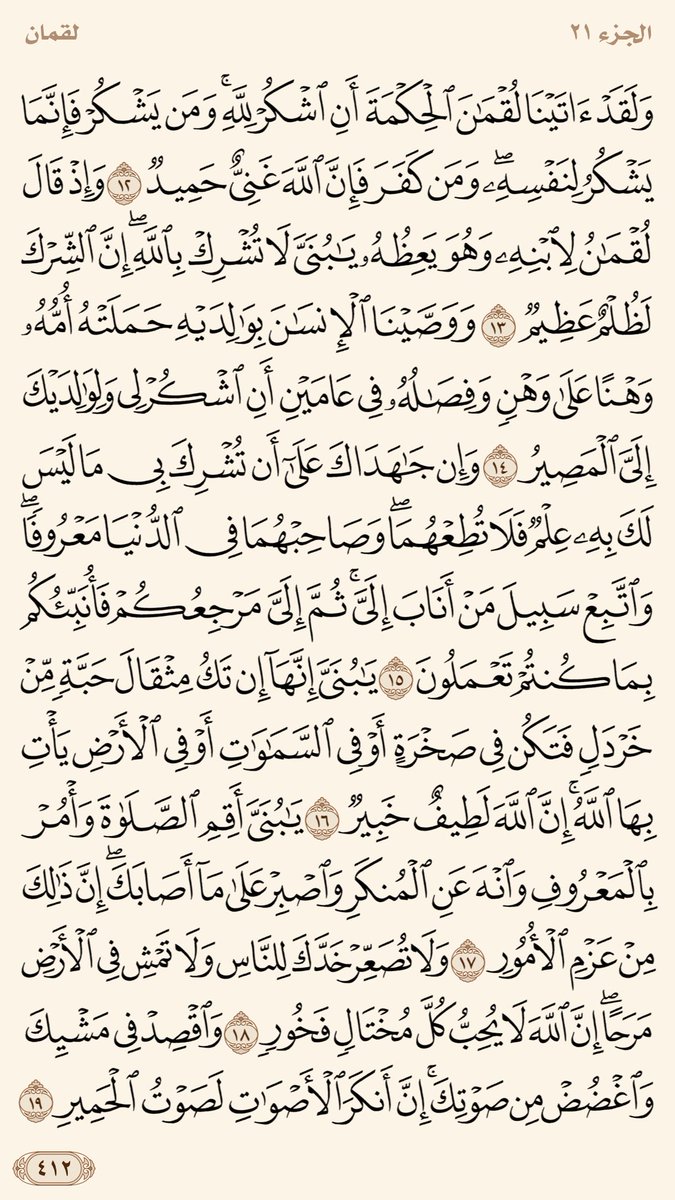 الجزء ٢١
لقمان
وَلَقَدۡ ءَاتَيۡنَا لُقۡمَٰنَ ٱلۡحِكۡمَةَ أَنِ ٱشۡكُرۡ لِلَّهِۚ وَمَن يَشۡكُرۡ فَإِنَّمَا
يَشۡكُرُ لِنَفۡسِهِۦۖ وَمَن كَفَرَ فَإِنَّ ٱللَّهَ غَنِيٌّ حَمِيدٞ ١٢ وَإِذۡ قَالَ
لُقۡمَٰنُ لِٱبۡنِهِۦ وَهُوَ يَعِظُهُۥ يَٰبُنَيَّ لَا تُشۡرِكۡ بِٱللَّهِۖ إِنَّ ٱلشِّرۡكَ
لَظُلۡمٌ عَظِيمٞ ١٣ وَوَصَّيۡنَا ٱلۡإِنسَٰنَ بِوَٰلِدَيۡهِ حَمَلَتۡهُ أُمُّهُۥ
وَهۡنًا عَلَىٰ وَهۡنٖ وَفِصَٰلُهُۥ فِي عَامَيۡنِ أَنِ ٱشۡكُرۡ لِي وَلِوَٰلِدَيۡكَ
إِلَيَّ ٱلۡمَصِيرُ ١٤ وَإِن جَٰهَدَاكَ عَلَىٰٓ أَن تُشۡرِكَ بِي مَا لَيۡسَ
لَكَ بِهِۦ عِلۡمٞ فَلَا تُطِعۡهُمَاۖ وَصَاحِبۡهُمَا فِي ٱلدُّنۡيَا مَعۡرُوفٗاۖ
وَٱتَّبِعۡ سَبِيلَ مَنۡ أَنَابَ إِلَيَّۚ ثُمَّ إِلَيَّ مَرۡجِعُكُمۡ فَأُنَبِّئُكُم
بِمَا كُنتُمۡ تَعۡمَلُونَ ١٥ يَٰبُنَيَّ إِنَّهَآ إِن تَكُ مِثۡقَالَ حَبَّةٖ مِّنۡ
خَرۡدَلٖ فَتَكُن فِي صَخۡرَةٍ أَوۡ فِي ٱلسَّمَٰوَٰتِ أَوۡ فِي ٱلۡأَرۡضِ يَأۡتِ
بِهَا ٱللَّهُۚ إِنَّ ٱللَّهَ لَطِيفٌ خَبِيرٞ ١٦ يَٰبُنَيَّ أَقِمِ ٱلصَّلَوٰةَ وَأۡمُرۡ
بِٱلۡمَعۡرُوفِ وَٱنۡهَ عَنِ ٱلۡمُنكَرِ وَٱصۡبِرۡ عَلَىٰ مَآ أَصَابَكَۖ إِنَّ ذَٰلِكَ
مِنۡ عَزۡمِ ٱلۡأُمُورِ ١٧ وَلَا تُصَعِّرۡ خَدَّكَ لِلنَّاسِ وَلَا تَمۡشِ فِي ٱلۡأَرۡضِ
مَرَحًاۖ إِنَّ ٱللَّهَ لَا يُحِبُّ كُلَّ مُخۡتَالٖ فَخُورٖ ١٨ وَٱقۡصِدۡ فِي مَشۡيِكَ
وَٱغۡضُضۡ مِن صَوۡتِكَۚ إِنَّ أَنكَرَ ٱلۡأَصۡوَٰتِ لَصَوۡتُ ٱلۡحَمِيرِ ١٩
٤١٢